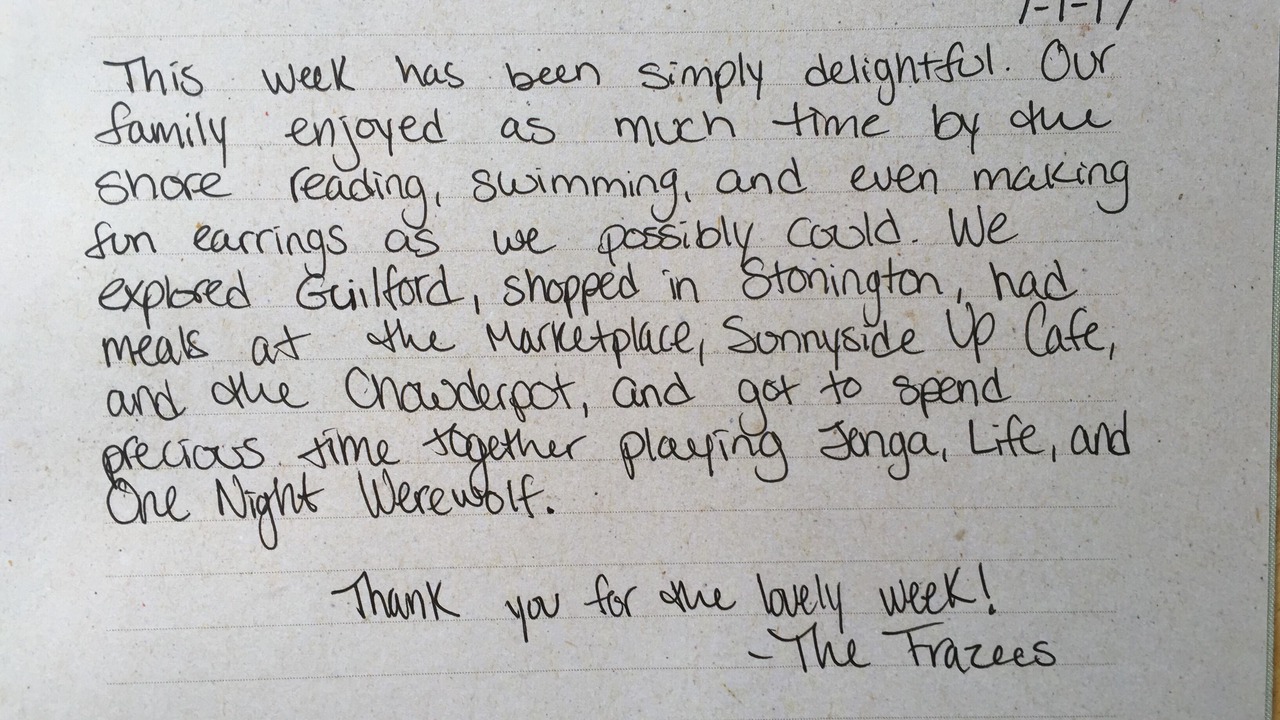 7-1-17
This week has been simply delightful. Our
family enjoyed as much time by the
shore reading, swimming, and even making
fun earrings as we possibly could. We
explored Guilford, shopped in Stonington, had
meals at the Marketplace, Sunnyside Up Cafe,
and the Chowderpot, and got to spend
precious time together playing Jenga, Life, and
One Night Werewolf.
Thank you for the lovely week!
-The Frazees